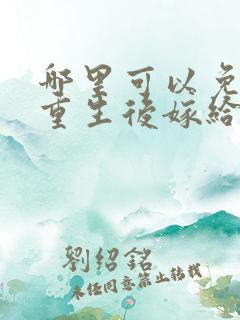 哪里可以免
重生後嫁給
劉紹銘
未经同意禁止转载